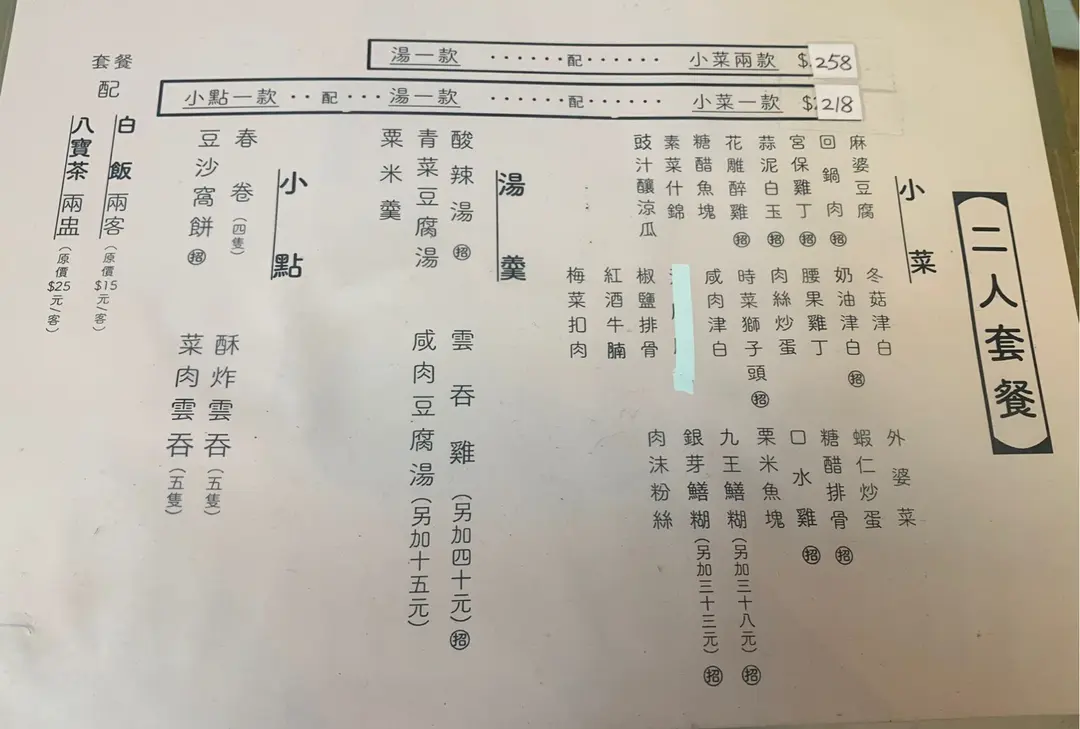 二人套餐
湯一款 ······配······ 小菜兩款 $258
小點一款 ··配···湯一款 ······配······ 小菜一款 $218
小菜
麻婆豆腐
回鍋肉 招
宮保雞丁 招
蒜泥白玉 招
花雕醉雞 招
糖醋魚塊
素菜什錦
豉汁釀涼瓜
冬菇津白
奶油津白 招
腰果雞丁
肉絲炒蛋
時菜獅子頭 招
咸肉津白
椒鹽排骨
紅酒牛腩
梅菜扣肉
外婆菜
蝦仁炒蛋
糖醋排骨 招
口水雞 招
粟米魚塊
九王鱔糊(另加三十八元) 招
銀芽鱔糊(另加三十三元) 招
肉沫粉絲
湯羹
酸辣湯 招
青菜豆腐湯
粟米羹
雲吞雞(另加四十元) 招
咸肉豆腐湯(另加十五元)
小點
春卷(四隻)
豆沙窩餅 招
酥炸雲吞(五隻)
菜肉雲吞(五隻)
套餐
配
白飯兩客(原價$15元/客)
八寶茶兩盅(原價$25元/客)